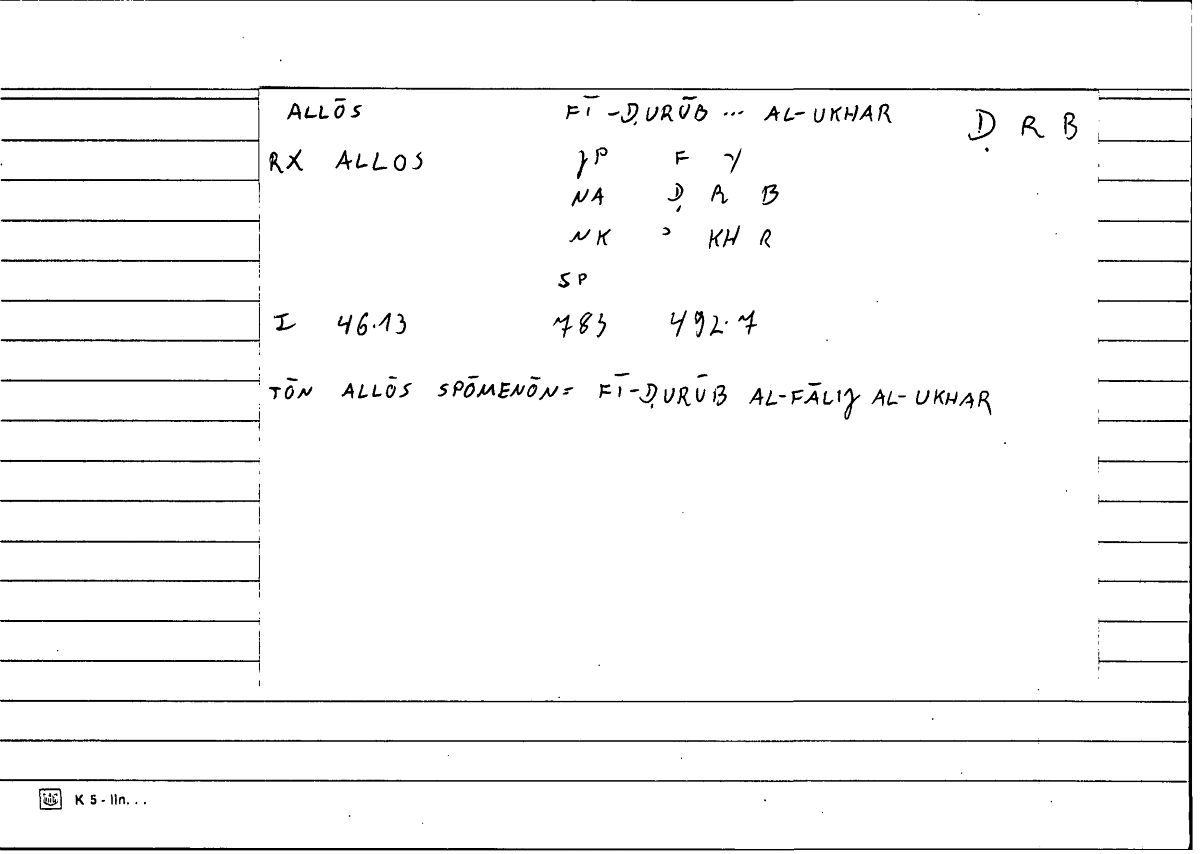 ALLŌS FĪ-ḌURŪB ... AL-UKHAR Ḍ R B
RX ALLOS JP F Y
NA Ḍ R B
NK ʾ KH R
SP
I 46.13 783 492.7
TŌN ALLŌS SPŌMENŌN= FĪ-ḌURŪB AL-FĀLIJ AL-UKHAR
K 5 - lln. . .